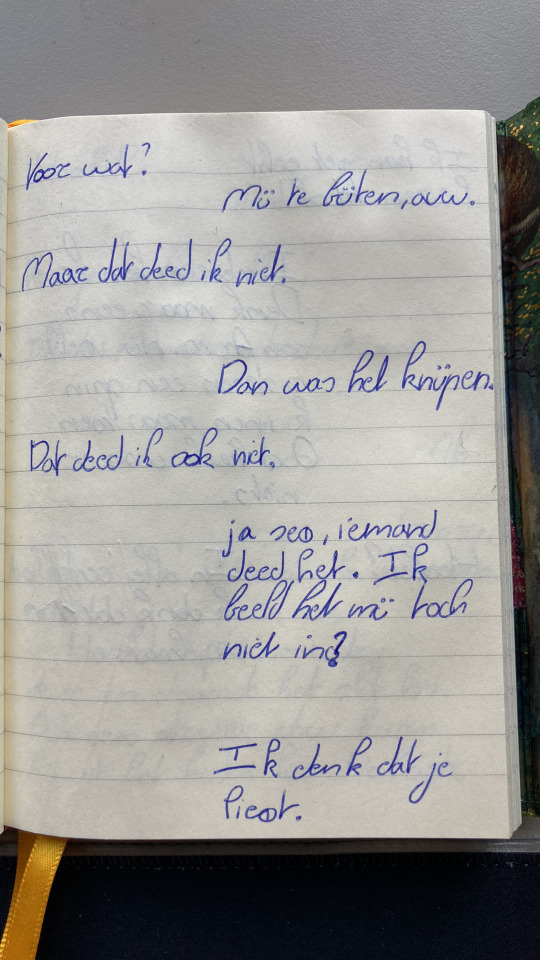 Voor wat?
Mij te bijten, auw.
Maar dat deed ik niet.
Dan was het knijpen.
Dat deed ik ook niet.
ja zeg, iemand
deed het. Ik
beeld het mij toch
niet in?
Ik denk dat je
liegt.